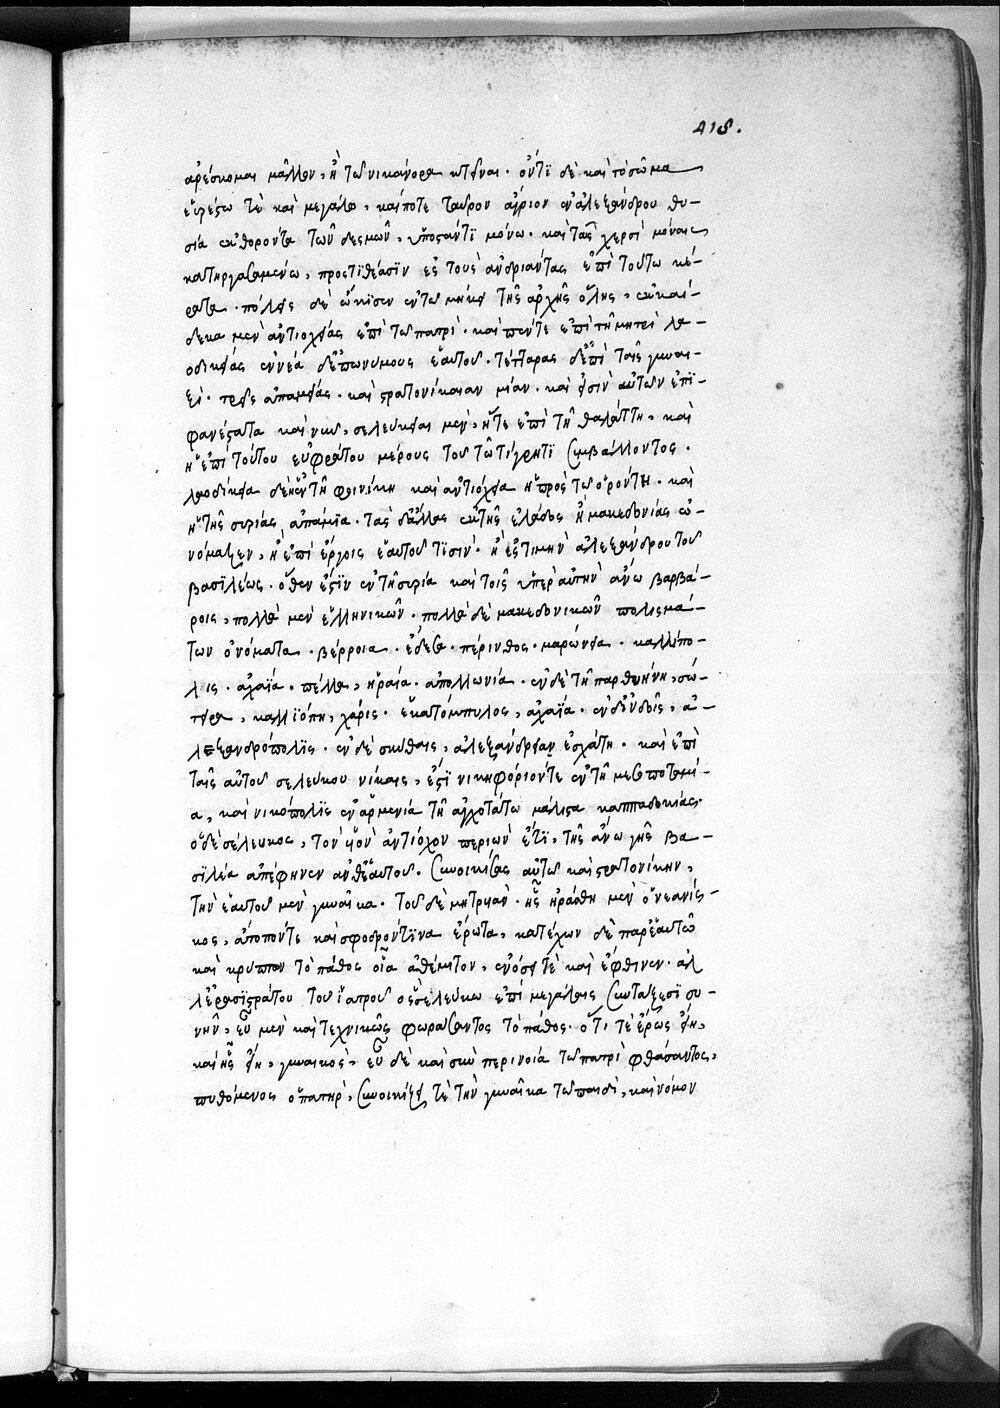 418.
ἀρέσκομαι μᾶλλον, ἢ τῶ νικάνορα κτεῖναι· ὄντϊ δὲ καὶ τὸ σῶμα
εὐρώστω τὲ καὶ μεγάλω, καί ποτε ταῦρον ἄγριον ἐν ἀλεξάνδρου θυ-
σία ἐκθορόντα τῶν δεσμῶν, ὑποστάντϊ μόνω· καὶ ταῖς χερσὶ μόναις
κατηργασαμένω, προστιθέασϊν ἐς τοὺς ἀνδριάντας ἐπὶ τούτω κέ-
ρατα· πόλεις δὲ ὤκισεν ἐπὶ τὸ μῆκος τῆς ἀρχῆς ὅλης, ἑκκαί-
δεκα μὲν ἀντιοχείας ἐπὶ τῶ πατρί· καὶ πέντε ἐπὶ τῆ μητρὶ λα-
οδικείας ἐννέα δ' ἐπωνύμους ἑαυτοῦ· τέτταρας δ' ἐπὶ ταῖς γυναι-
ξί· τρεῖς ἀπαμείας· καὶ στρατονίκειαν μίαν· καὶ εἰσὶν αὐτῶν ἐπϊ-
φανέσταται καὶ νῦν, σελεύκειαι μὲν, ἥτε ἐπὶ τῆ θαλάττη, καὶ
ἡ ἐπὶ τούτου εὐφράτου μέρους τοῦ τῶ τίγρητϊ συμβάλλοντος·
λαοδίκεια δὲ ἡ ἐν τῆ φοινίκη καὶ ἀντιόχεια ἡ πρὸς τῶ ὀρόντη· καὶ
ἡ τῆς συρίας ἀπάμϊα· τὰς δ' ἄλλας ἐκ τῆς ἑλάδος ἢ μακεδονίας ὠ-
νόμαζεν, ἢ ἐπὶ ἔργοις ἑαυτοῦ τϊσίν· ἢ ἐς τιμὴν ἀλεξάνδρου τοῦ
βασϊλέως· ὅθεν ἐστϊν ἐν τῆ συρία καὶ τοῖς ὑπὲρ αὐτὴν ἄνω βαρβά-
ροις, πολλὰ μὲν ἑλληνικῶν· πολλὰ δὲ μακεδονικῶν πολισμά-
των ὀνόματα· βέρροια· ἔδεσα· πέρινθος· μαρώνεια· καλλίπο-
λις· ἀχαϊά· πέλλα, ἡραία· ἀπολλωνία· ἐν δὲ τῆ παρθυήνη, σώ-
τειρα, καλλϊόπη, χάρις· ἑκατόμπυλος, ἀχαΐα· ἐν δ' ἰνδοῖς, ἀ-
λεξανδρόπολϊς· ἐν δὲ σκύθαις, ἀλεξάνδρεια ἐσχάτη· καὶ ἐπὶ
ταῖς αὐτοῦ σελεύκου νίκαις, ἐστϊ νικηφόριόν τε ἐν τῆ μεσοποταμί-
α, καὶ νικόπολϊς ἐν ἀρμενία τῆ ἀγχοτάτω μάλιστα καππαδοκίας·
ὁ δὲ σέλευκος, τὸν υἱὸν ἀντίοχον περιὼν ἔτϊ, τῆς ἄνω γῆς βα-
σϊλέα ἀπέφηνεν ἀνθ' ἑαυτοῦ. συνοικίσας αὐτῶ καὶ στρατονίκην,
τὴν ἑαυτοῦ μὲν γυναῖκα· τοῦ δὲ μητρυιὰν· ἧς ἠράσθη μὲν ὁ νεανίσ-
κος, ἀποπόντε καὶ σφοδρόν τϊνα ἔρωτα, κατέχων δὲ παρ' ἑαυτῶ
καὶ κρύπτων τὸ πάθος οἷα ἀθέμιτον, ἐνόσει τὲ καὶ ἔφθινεν· ἀλ
λ' ἐρασϊστράτου τοῦ ἰατροῦ ὃς σελεύκω ἐπὶ μεγάλαις συντάξεσϊ συ-
νῆν, εὖ μὲν καὶ τεχνικῶς φωράσαντος τὸ πάθος· ὅ, τι τὲ ἔρως εἴη,
καὶ ἧς εἴη, γυναικὸς, εὖ δὲ καὶ σὺν περινοία τῶ πατρὶ φθάσαντος,
πυθόμενος ὁ πατὴρ, συνοικίζει τὲ τὴν γυναῖκα τῶ παιδὶ, καὶ νόμον